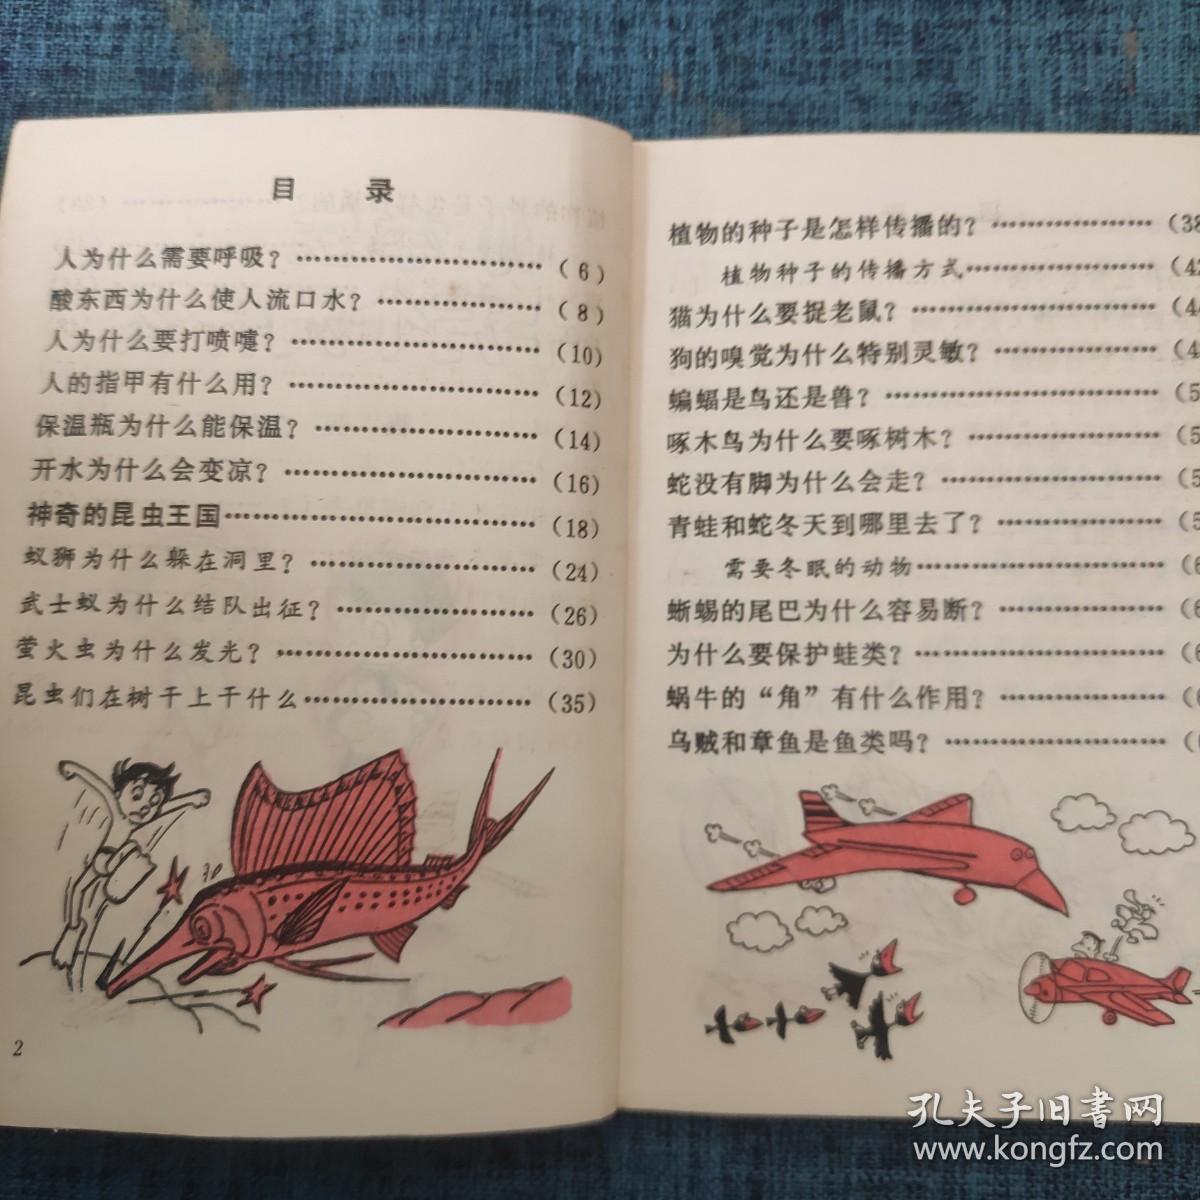 目 录
人为什么需要呼吸？ ………………………（6）
酸东西为什么使人流口水？ ………………（8）
人为什么要打喷嚏？ ………………………（10）
人的指甲有什么用？ ………………………（12）
保温瓶为什么能保温？ ……………………（14）
开水为什么会变凉？ ………………………（16）
神奇的昆虫王国……………………………（18）
蚁狮为什么躲在洞里？ ……………………（24）
武士蚁为什么结队出征？ …………………（26）
萤火虫为什么发光？ ………………………（30）
昆虫们在树干上干什么……………………（35）
2
植物的种子是怎样传播的？ ………………（38
植物种子的传播方式…………………（42
猫为什么要捉老鼠？ ………………………（44
狗的嗅觉为什么特别灵敏？ ………………（4
蝙蝠是鸟还是兽？ …………………………（5
啄木鸟为什么要啄树木？ …………………（5
蛇没有脚为什么会走？ ……………………（5
青蛙和蛇冬天到哪里去了？ ………………（5
需要冬眠的动物………………………（6
蜥蜴的尾巴为什么容易断？ ………………（6
为什么要保护蛙类？ ………………………（6
蜗牛的“角”有什么作用？ ………………（6
乌贼和章鱼是鱼类吗？ ……………………（
孔夫子旧书网
www.kongfz.com